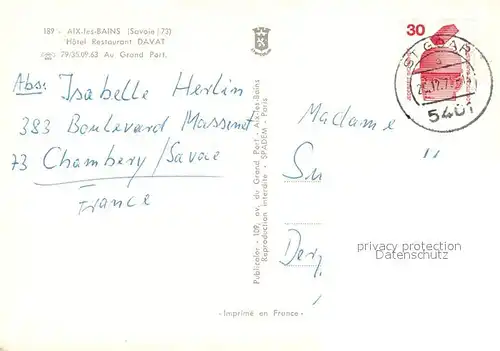 189 - AIX-les-BAINS (Savoie/73)
Hôtel Restaurant DAVAT
79/35.09.63 Au Grand Port.
Abs: Isabelle Herlin
383 Boulevard Massenet
73 Chambery/Savoie
France
Publicolor - 109, av. du Grand Port - Aix-les-Bains
Reproduction interdite - SPADEM - Paris
30
ST GOAR
5401
Madame
privacy protection
Datenschutz
- Imprimé en France -